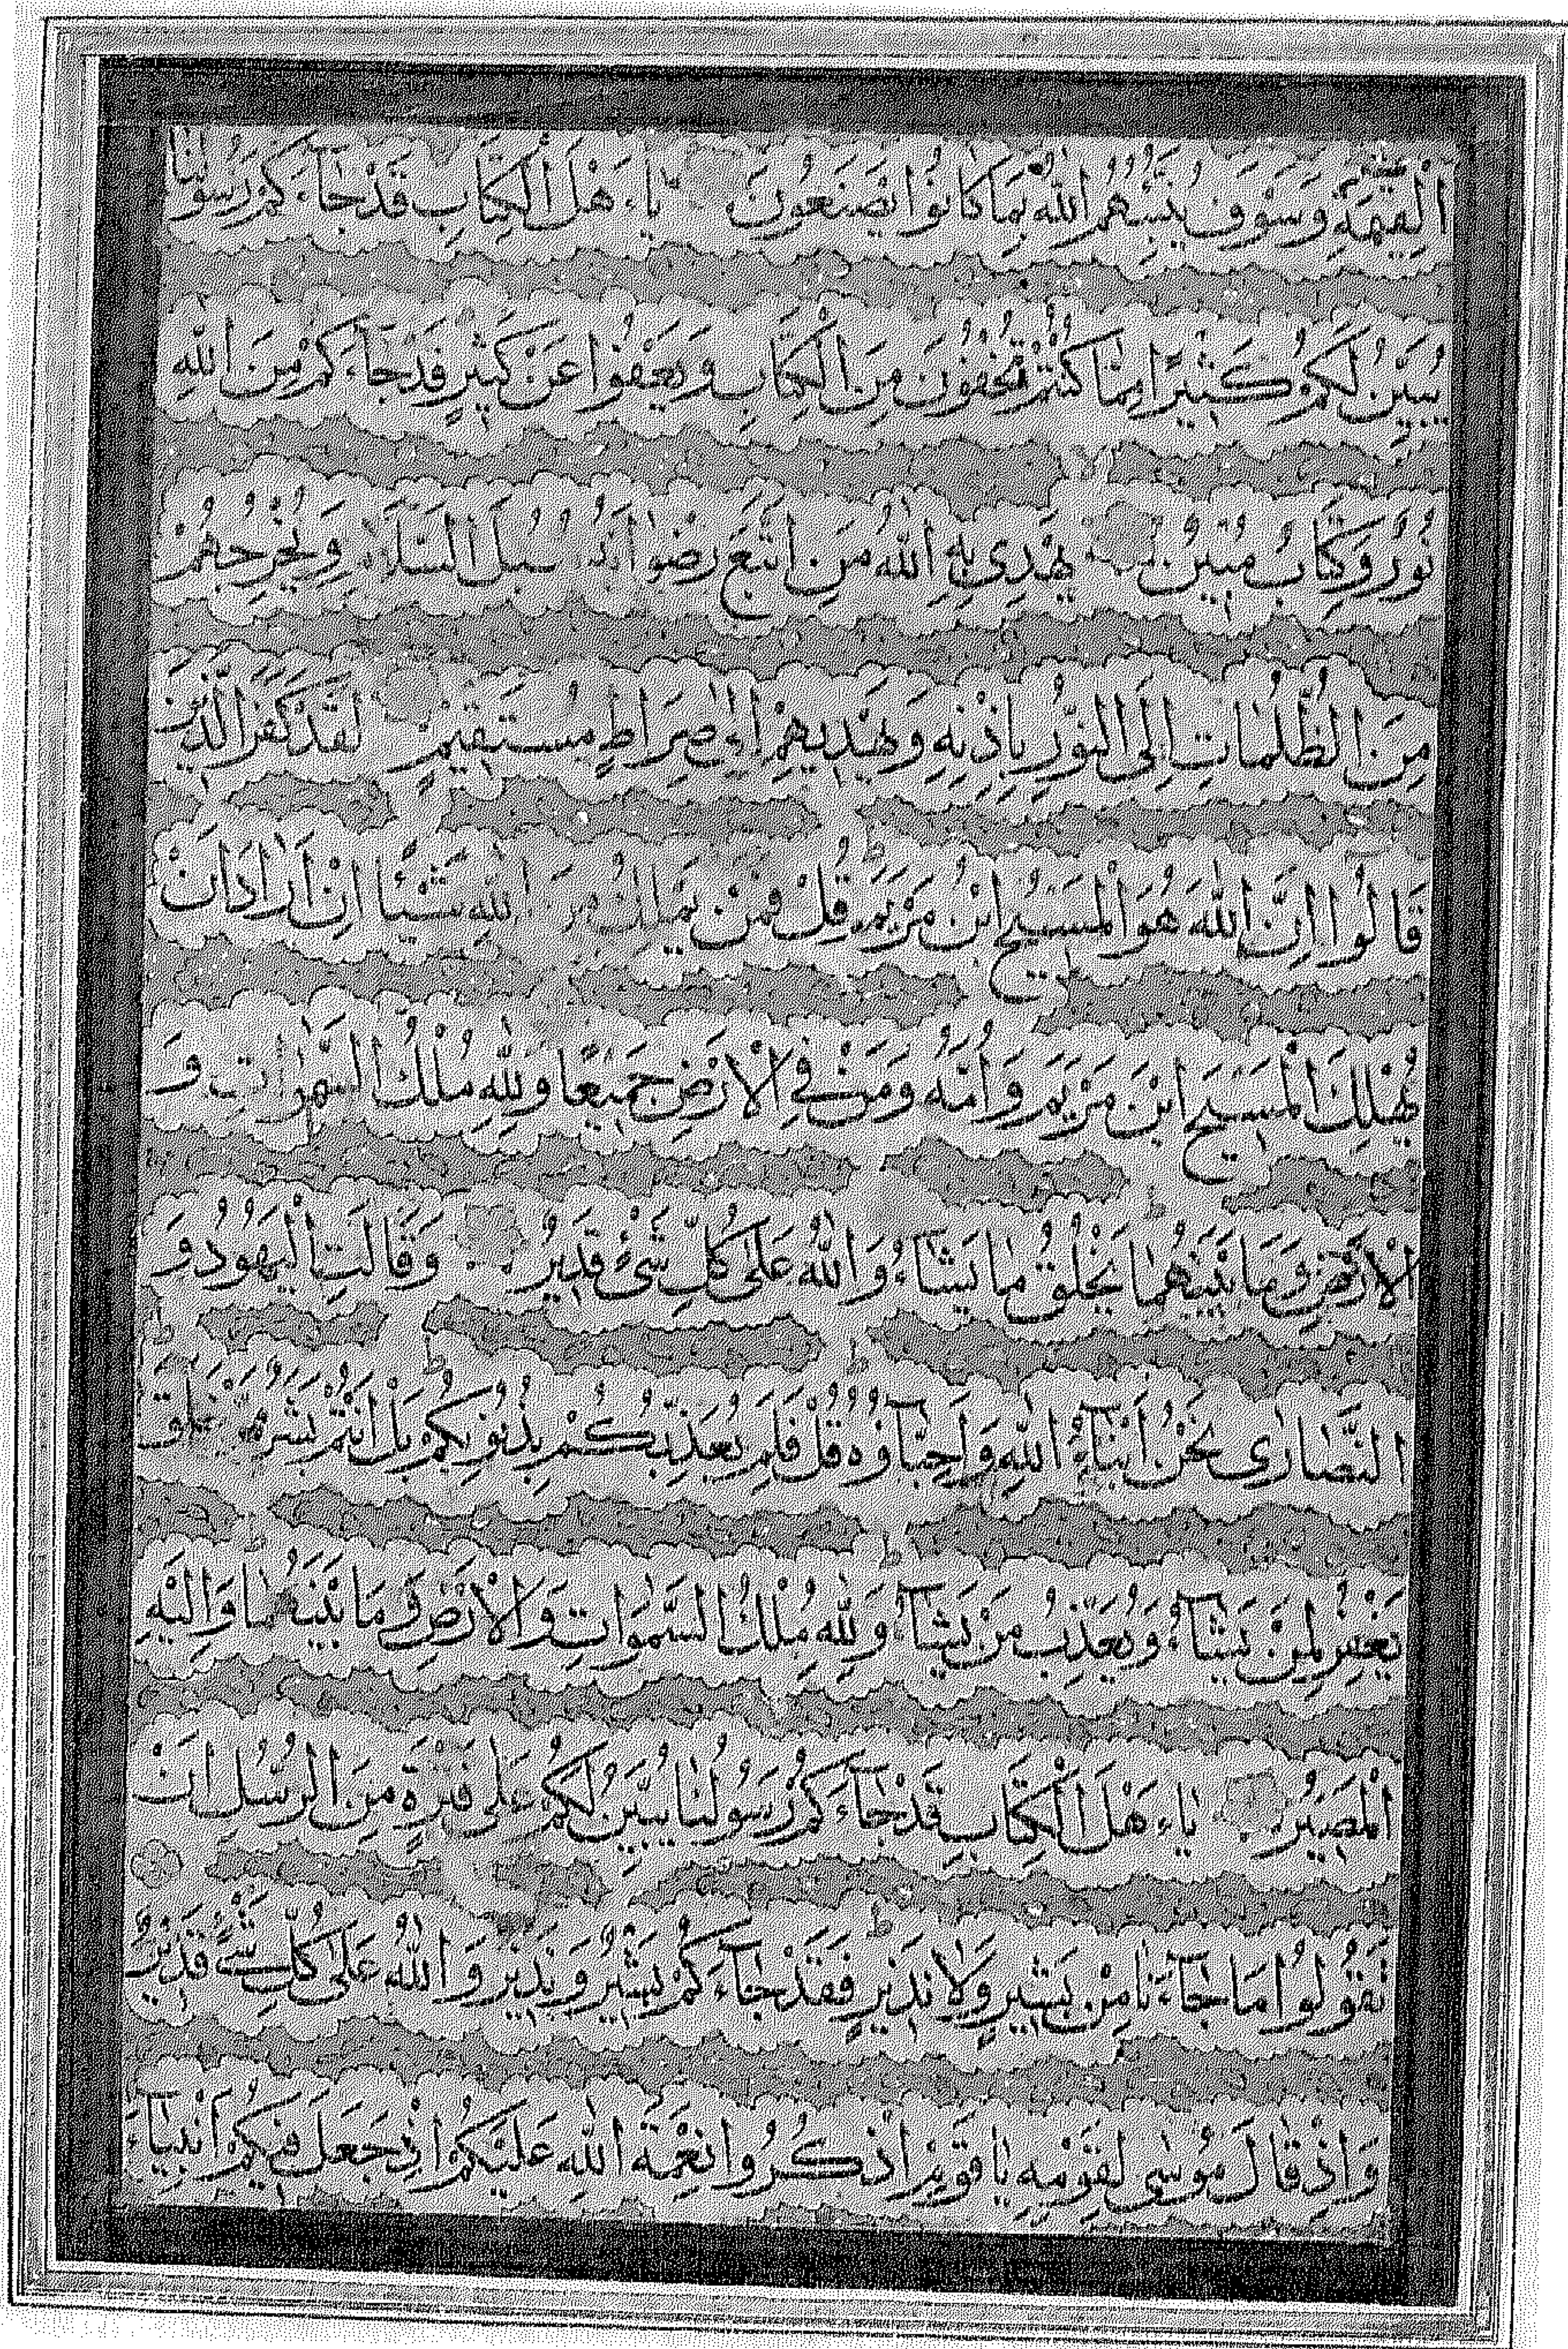 الْقِيٰمَةِ وَسَوْفَ يُنَبِّئُهُمُ اللهُ بِمَا كَانُوا يَصْنَعُونَ يَاءَهْلَ الْكِتَابِ قَدْ جَاءَكُمْ رَسُولُنَا
يُبَيِّنُ لَكُمْ كَثِيرًا مِمَّا كُنْتُمْ تُخْفُونَ مِنَ الْكِتَابِ وَيَعْفُوا عَنْ كَثِيرٍ قَدْ جَاءَكُمْ مِنَ اللهِ
نُورٌ وَكِتَابٌ مُبِينٌ يَهْدِي بِهِ اللهُ مَنِ اتَّبَعَ رِضْوَانَهُ سُبُلَ السَّلَامِ وَيُخْرِجُهُمْ
مِنَ الظُّلُمَاتِ إِلَى النُّورِ بِإِذْنِهِ وَيَهْدِيهِمْ إِلَى صِرَاطٍ مُسْتَقِيمٍ لَقَدْ كَفَرَ الَّذِينَ
قَالُوا إِنَّ اللهَ هُوَ الْمَسِيحُ ابْنُ مَرْيَمَ قُلْ فَمَنْ يَمْلِكُ مِنَ اللهِ شَيْئًا إِنْ أَرَادَ أَنْ
يُهْلِكَ الْمَسِيحَ ابْنَ مَرْيَمَ وَأُمَّهُ وَمَنْ فِي الْأَرْضِ جَمِيعًا وَلِلهِ مُلْكُ السَّمٰوَاتِ وَ
الْأَرْضِ وَمَا بَيْنَهُمَا يَخْلُقُ مَا يَشَاءُ وَاللهُ عَلَى كُلِّ شَيْءٍ قَدِيرٌ وَقَالَتِ الْيَهُودُ وَ
النَّصَارٰى نَحْنُ أَبْنَاءُ اللهِ وَأَحِبَّاؤُهُ قُلْ فَلِمَ يُعَذِّبُكُمْ بِذُنُوبِكُمْ بَلْ أَنْتُمْ بَشَرٌ مِمَّنْ خَلَقَ
يَغْفِرُ لِمَنْ يَشَاءُ وَيُعَذِّبُ مَنْ يَشَاءُ وَلِلهِ مُلْكُ السَّمٰوَاتِ وَالْأَرْضِ وَمَا بَيْنَهُمَا وَإِلَيْهِ
الْمَصِيرُ يَاءَهْلَ الْكِتَابِ قَدْ جَاءَكُمْ رَسُولُنَا يُبَيِّنُ لَكُمْ عَلَى فَتْرَةٍ مِنَ الرُّسُلِ أَنْ
تَقُولُوا مَا جَاءَنَا مِنْ بَشِيرٍ وَلَا نَذِيرٍ فَقَدْ جَاءَكُمْ بَشِيرٌ وَنَذِيرٌ وَاللهُ عَلَى كُلِّ شَيْءٍ قَدِيرٌ
وَإِذْ قَالَ مُوسٰى لِقَوْمِهِ يَا قَوْمِ اذْكُرُوا نِعْمَةَ اللهِ عَلَيْكُمْ إِذْ جَعَلَ فِيكُمْ أَنْبِيَاءَ